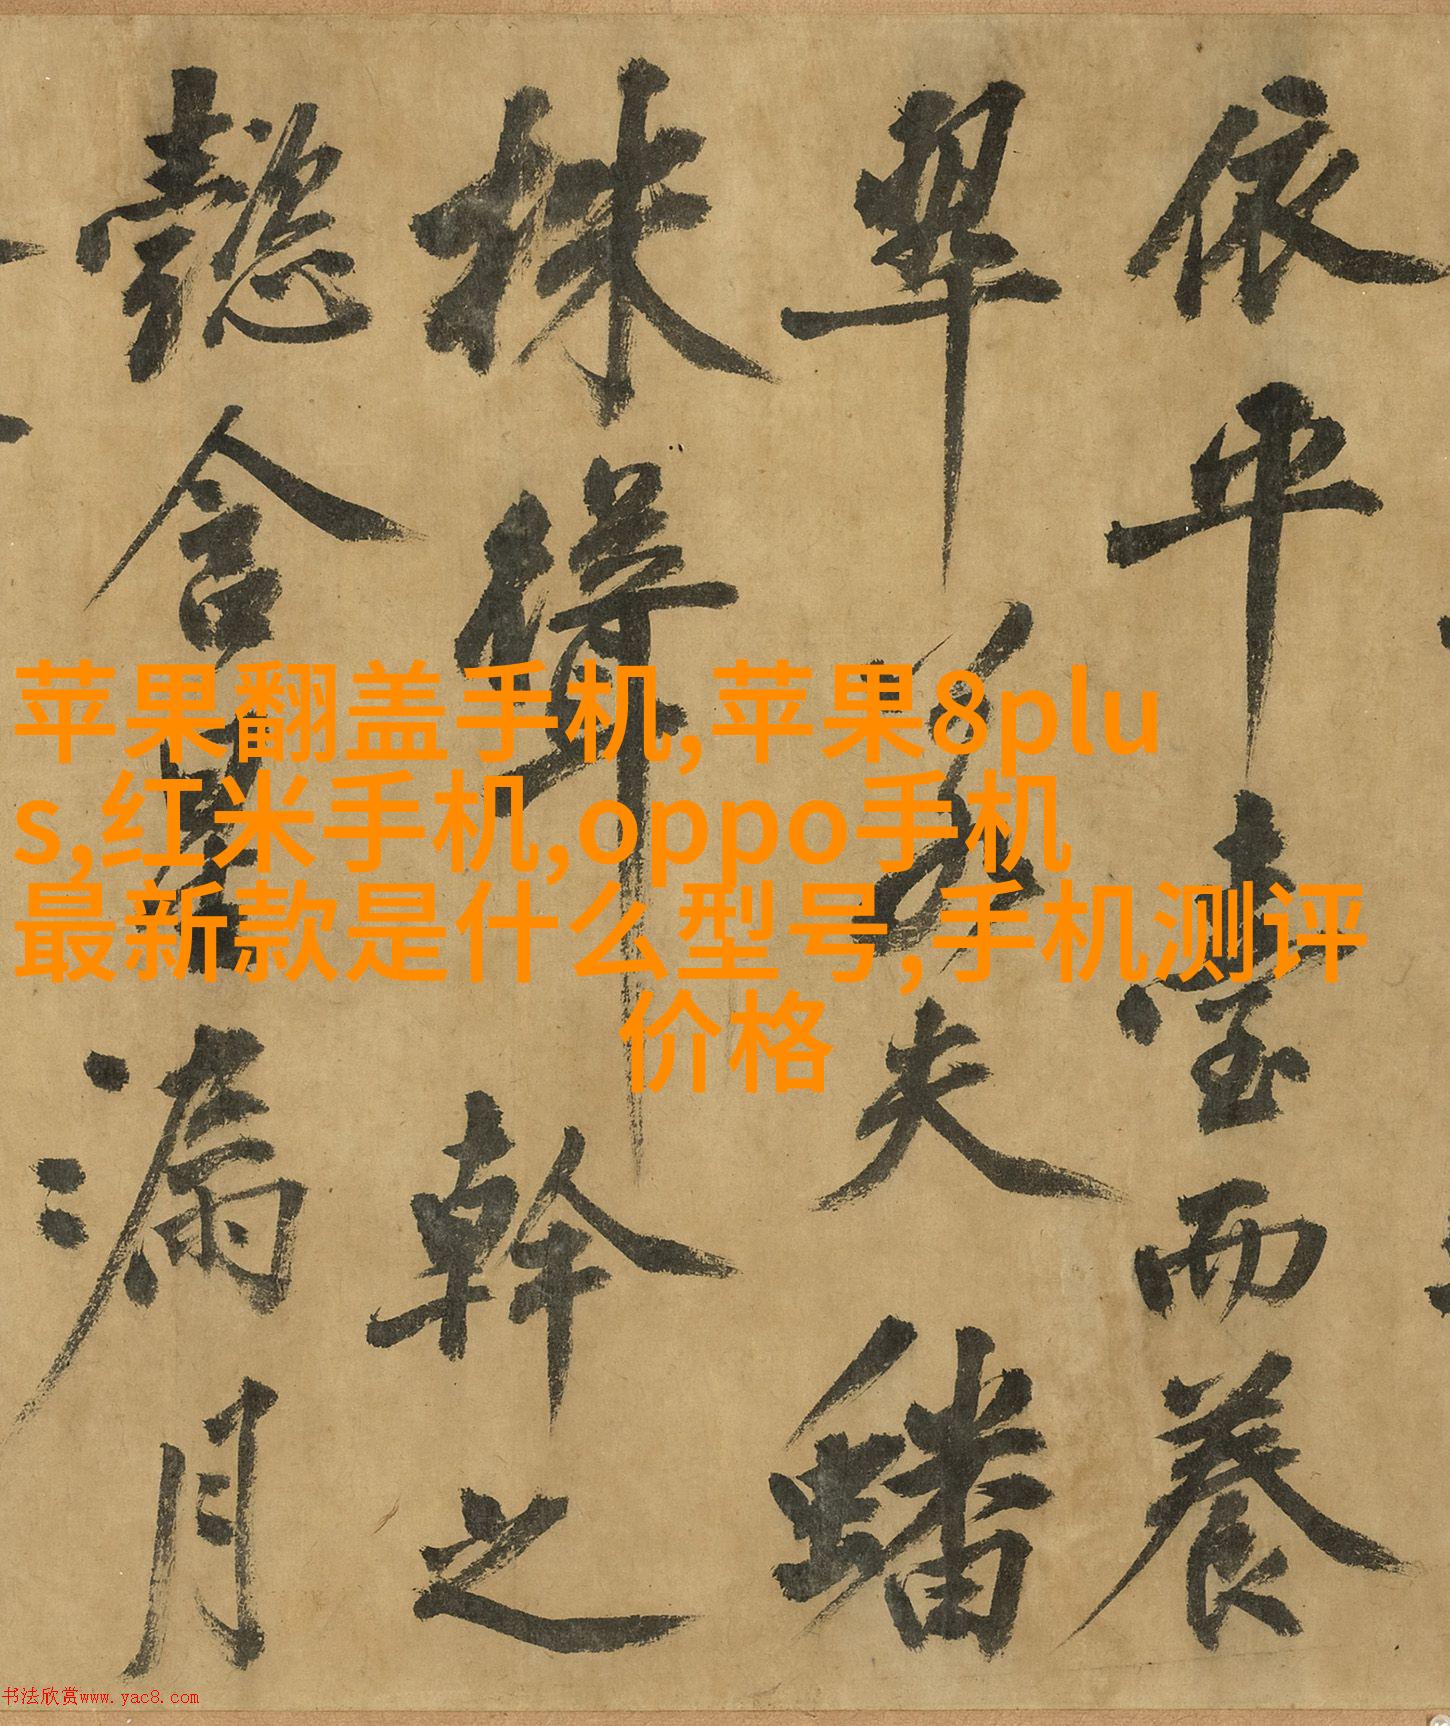 苹果翻盖手机,苹果8plu
s,红米手机,oppo手机
最新款是什么型号,手机测评
价格
依平臺而養
翠若夫蟠
株幹之
懿含漏月
书法欣赏www.yac8.com